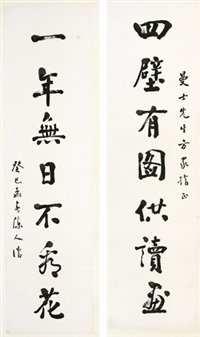 曼士先生方家指正
四壁有圖供讀畫
一年無日不看花
癸巳春陳人浩